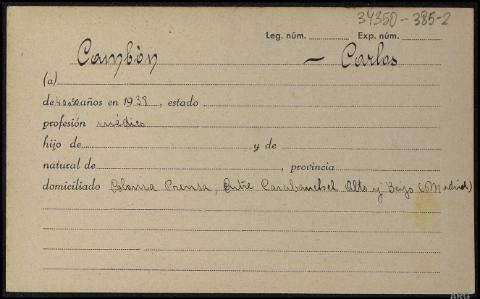 34350-385-2
Leg. núm. Exp. núm.
Cambón - Carlos
(a)
de 40 a 50 años en 1939, estado
profesión médico
hijo de y de
natural de , provincia
domiciliado Colonia Prensa, Entre Carabanchel Alto y Bajo (Madrid)
ARG